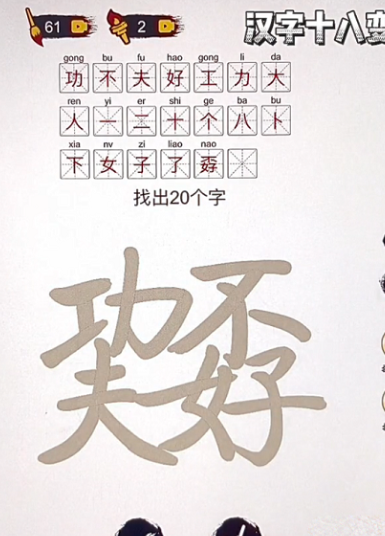 61 2 汉字十八变
gong bu fu hao gong li da
功 不 夫 好 工 力 大
ren yi er shi ge ba bu
人 一 二 十 个 八 卜
xia nv zi liao nao
下 女 子 了 孬
找出20个字
功不
夫好